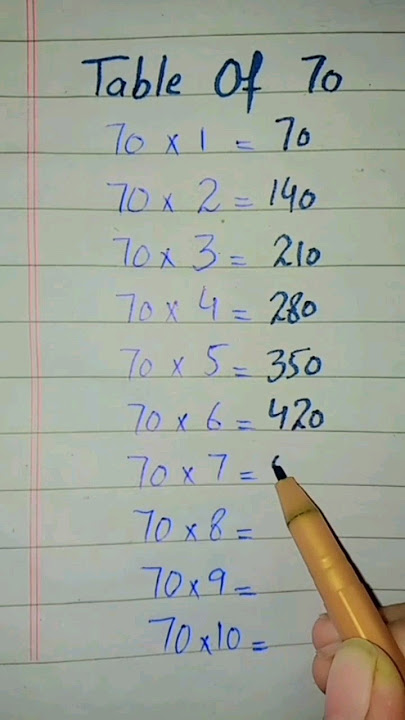 Table Of 70
70 x 1 = 70
70 x 2 = 140
70 x 3 = 210
70 x 4 = 280
70 x 5 = 350
70 x 6 = 420
70 x 7 =
70 x 8 =
70 x 9 =
70 x 10 =